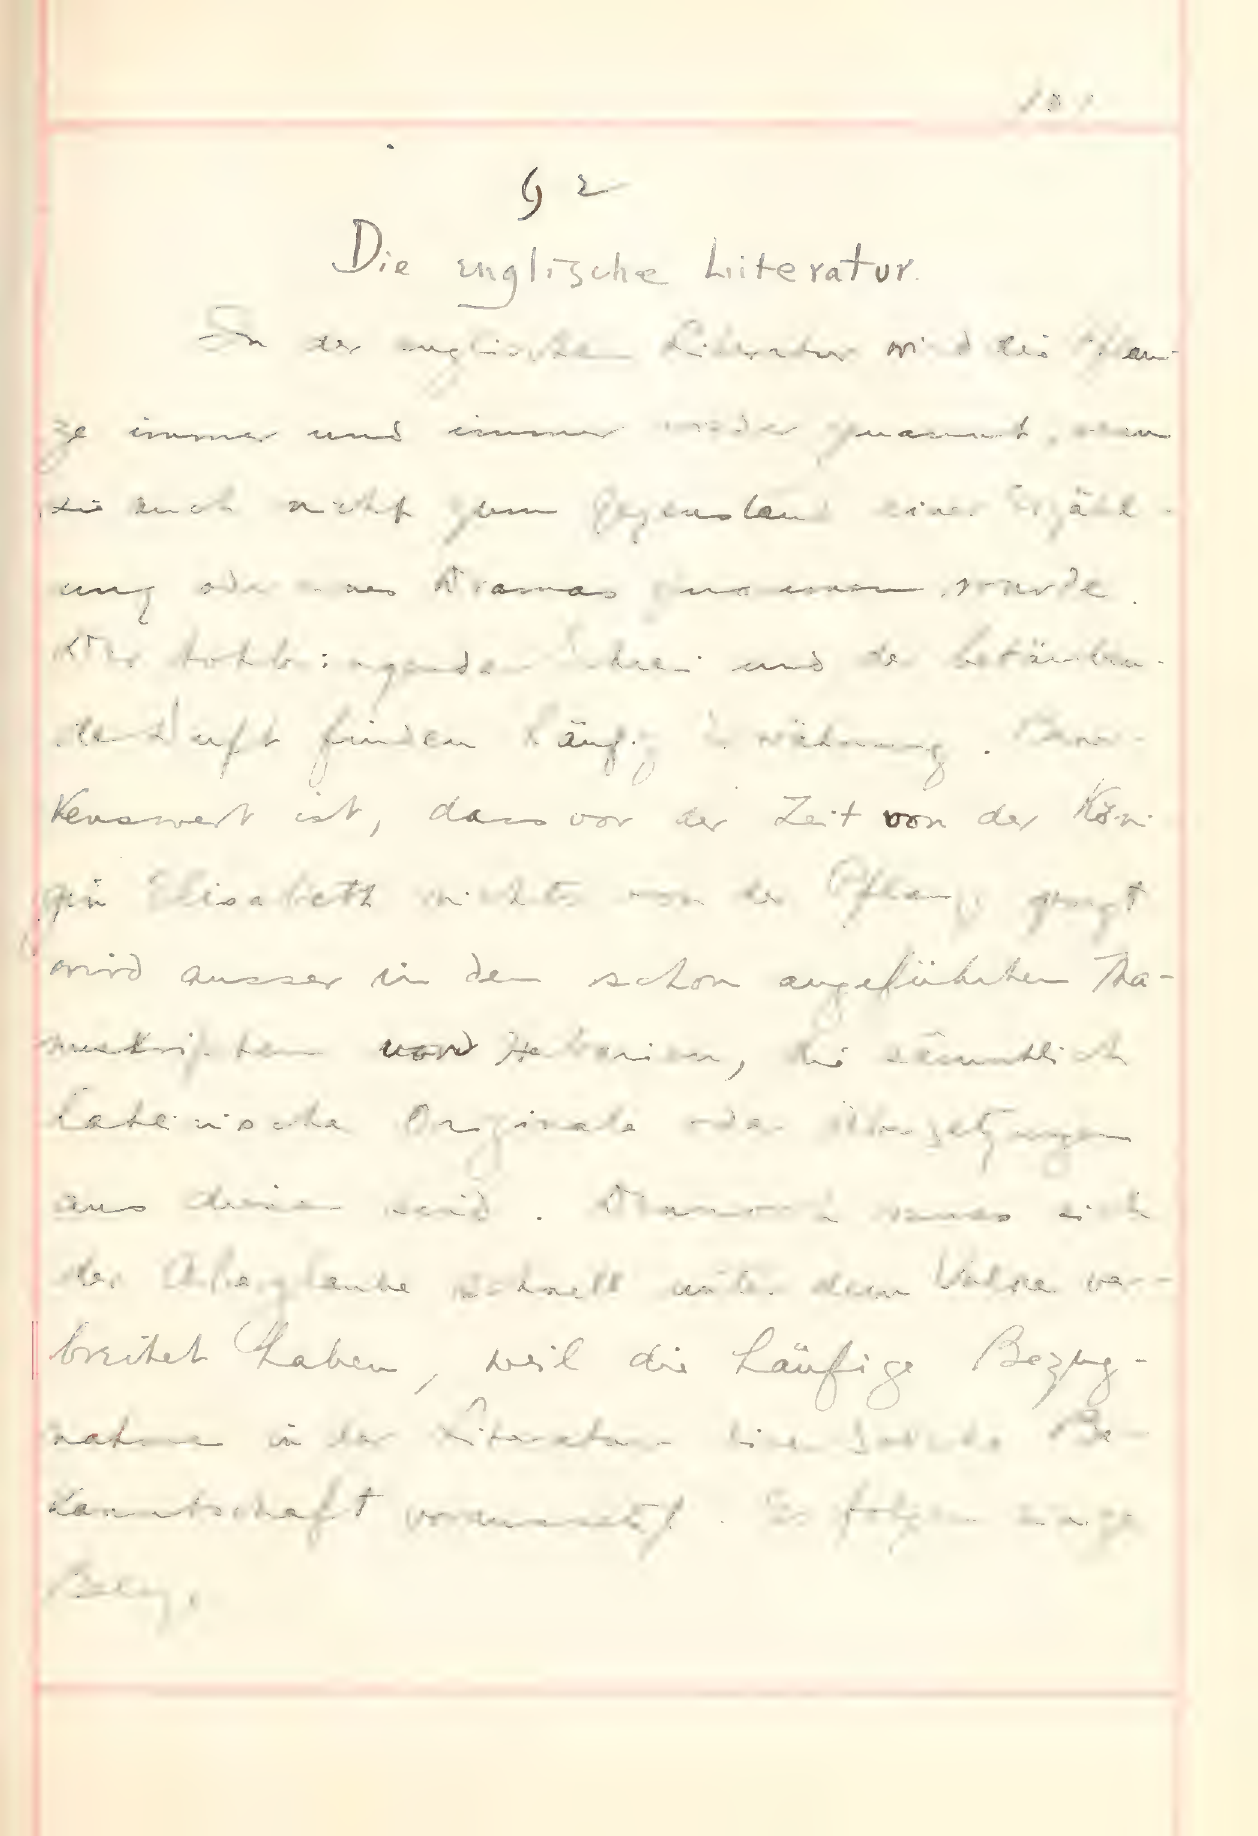 101
§ 2
Die englische Literatur.
In der englischen Literatur wird die Pflan-
ze immer und immer wieder genannt, wenn
sie auch nicht zum Gegenstand einer Erzähl-
ung oder eines Dramas genommen wurde.
Der totbringende Schrei und der betäuben-
de Duft finden häufig Erwähnung. Bemer-
kenswert ist, dass vor der Zeit von der Köni
gin Elisabeth nichts von der Pflanze gesagt
wird ausser in den schon angeführten Ma-
nuskripten von Herbarien, die sämmtlich
lateinische Originale oder Übersetzungen
aus diesen sind. Dennoch muss sich
der Aberglaube schnell unter dem Volke ver-
breitet haben, weil die häufige Bezug-
nahme in der Literatur eine solche Be-
kanntschaft voraussetzt. Es folgen einige
Belege